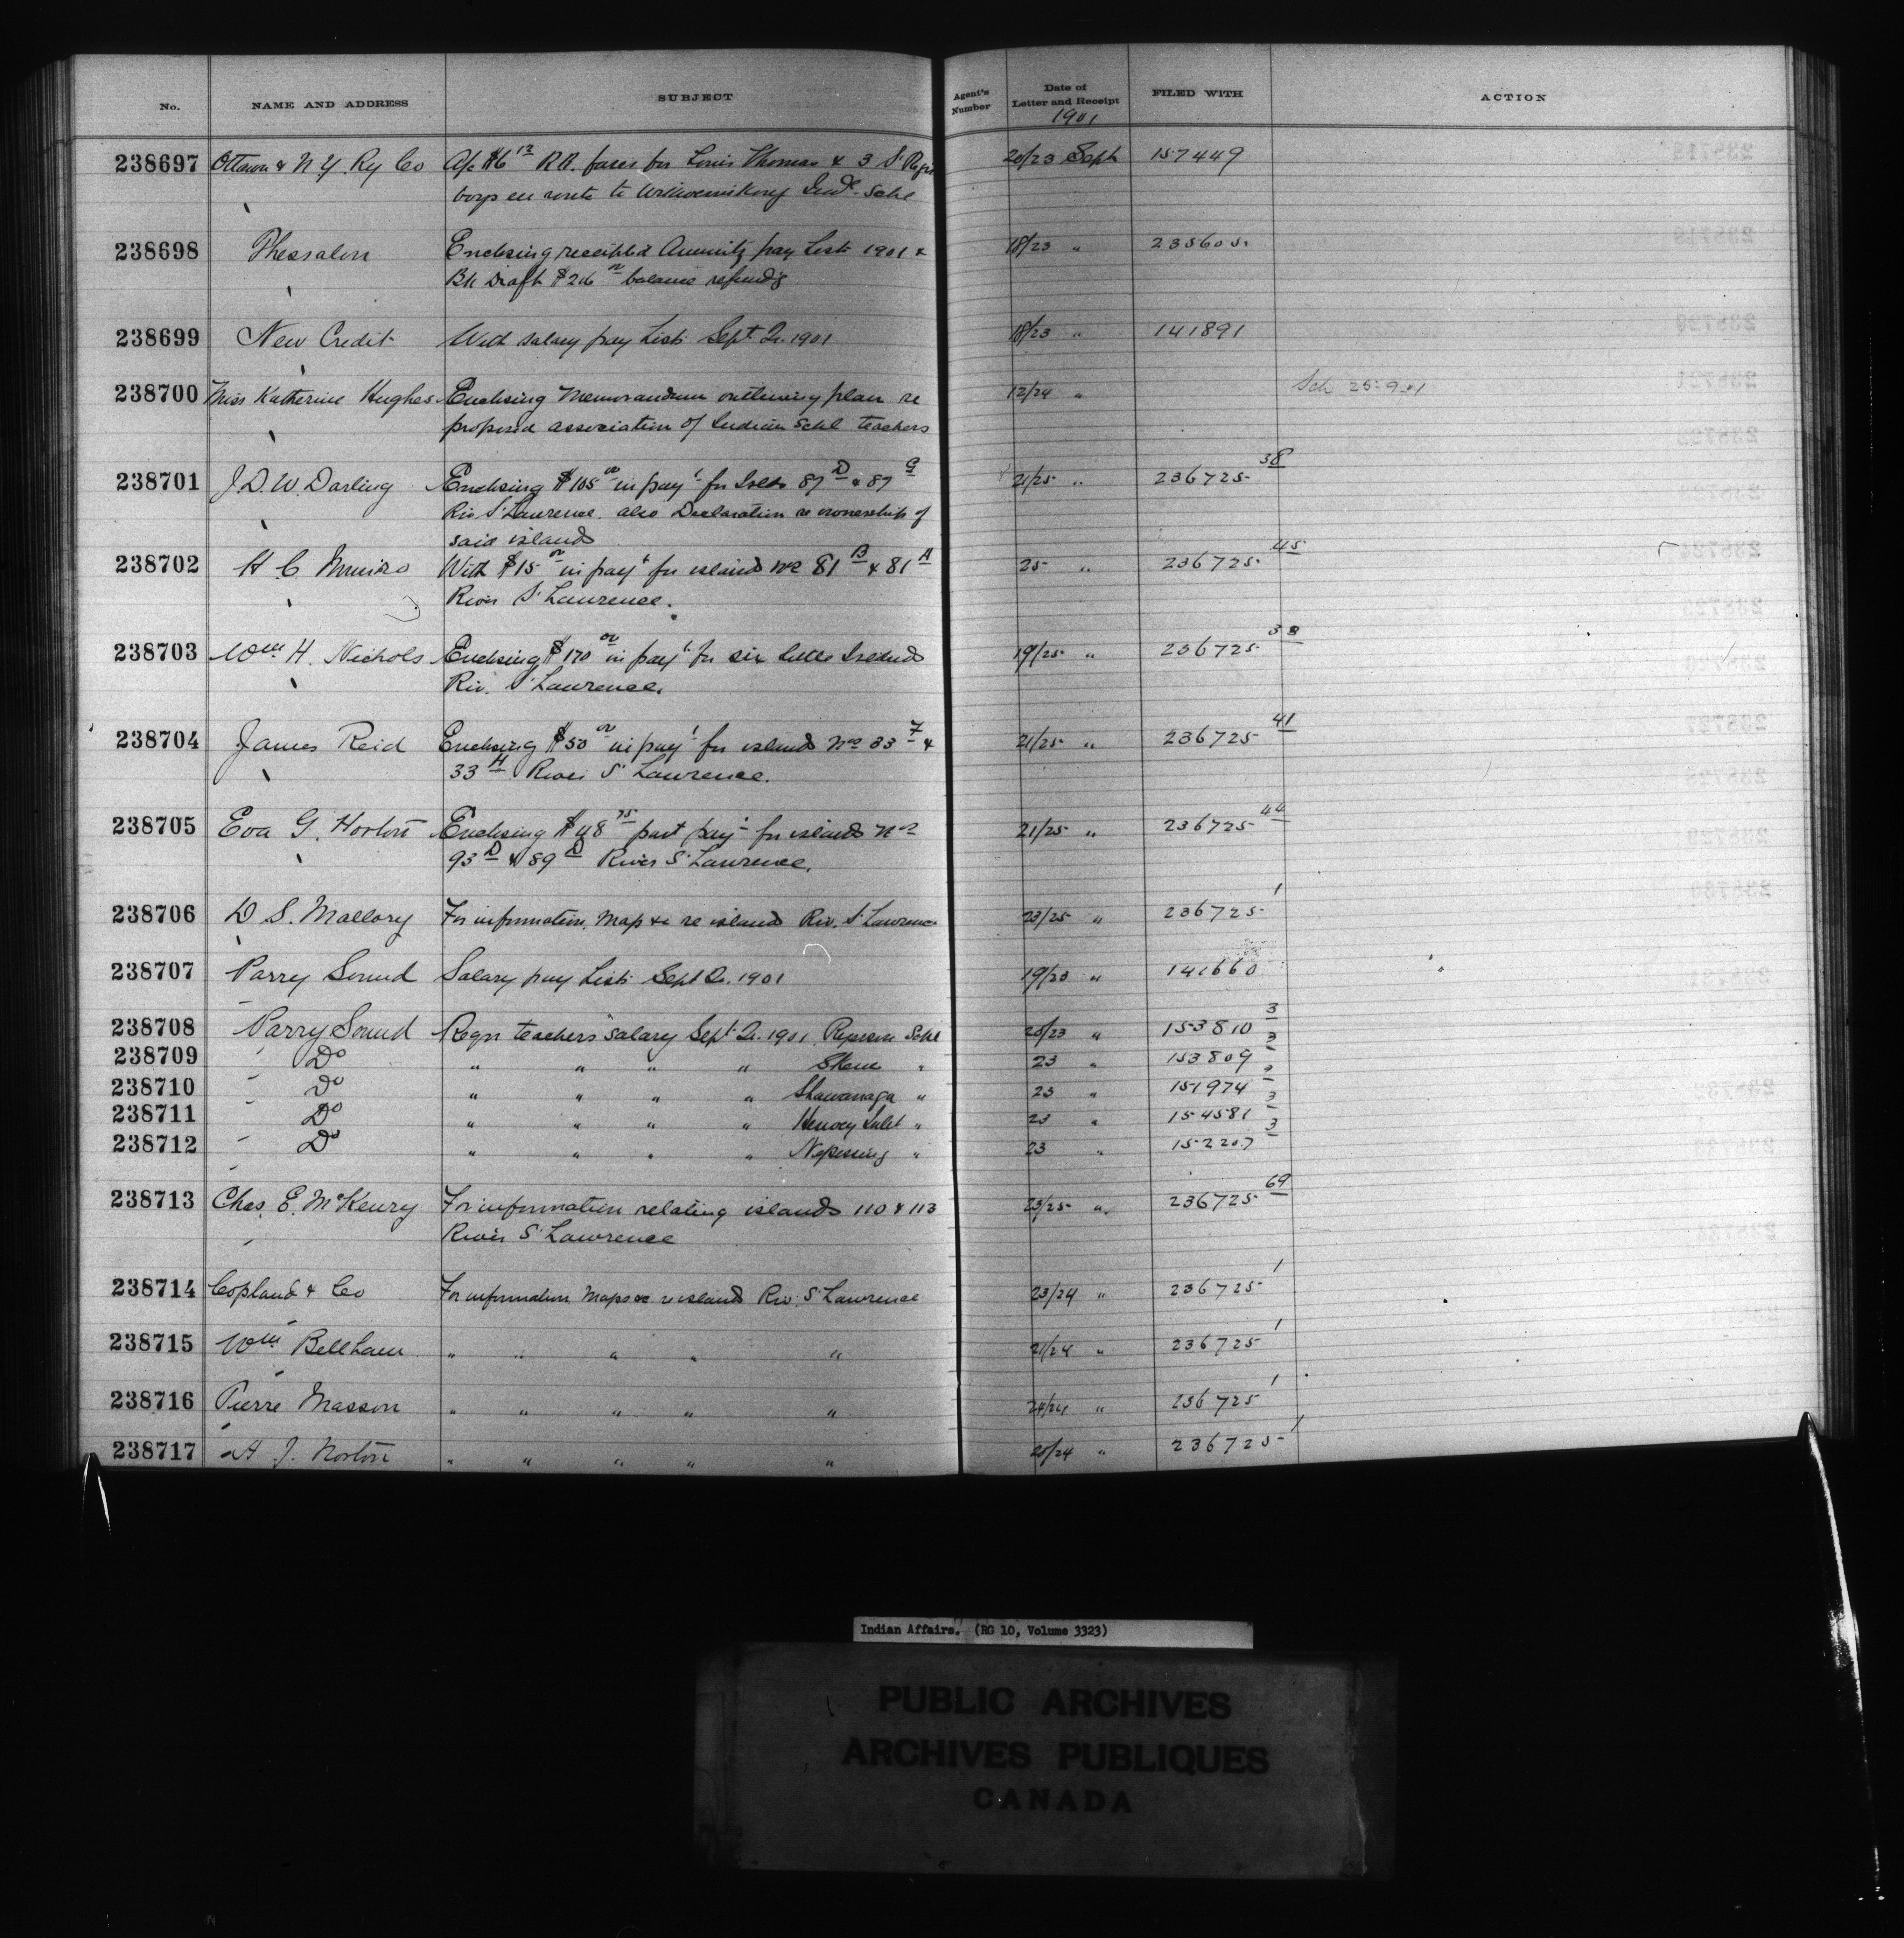 No. NAME AND ADDRESS SUBJECT Agent's Number Date of Letter and Receipt FILED WITH ACTION
1901
238697 Ottawa & N. Y. Ry Co A/c $6 12 R.R. fares for Louis Thomas & 3 St Regis 20/23 Sept 157449
boys en route to Wikwemikong Indl. Schl
238698 Thessalon Enclosing receipted Annuity pay List 1901 & 18/23 " 235605
Bk Draft $26 00 balance refund'g
238699 New Credit With salary pay List Sept Qr. 1901 18/23 " 141891
238700 Miss Katherine Hughes Enclosing Memorandum outlining plan re 12/24 " Sch 25-9-01
proposed association of Indian Schl teachers
238701 J. D. W. Darling Enclosing $105 00 in payt for Islds 87 D & 87 G 21/25 " 236725 38
Riv St Lawrence. also Declaration re ownership of
said islands
238702 H C Munro With $15 00 in payt for island Nos 81 B & 81 A 25 " 236725 45
River St Lawrence.
238703 Wm H. Nichols Enclosing $170 00 in payt for six little Islands 19/25 " 236725 38
Riv. St Lawrence.
238704 James Reid Enclosing $50 00 in payt for island Nos 33 F & 21/25 " 236725 41
33 H River St Lawrence.
238705 Eva G. Horton Enclosing $48 75 part payt for islands Nos 21/25 " 236725 44
93 D & 89 D River St Lawrence.
238706 D S. Mallory For information, Map &c re island Riv. St Lawrence 23/25 " 236725 1
238707 Parry Sound Salary pay List Sept Qr. 1901 19/23 " 141660
238708 Parry Sound Reqn teachers salary Sept Qr. 1901 Ryerson Schl 20/23 " 153810 3
238709 Do " " " " Skene " 23 " 153809 3
238710 Do " " " " Shawanaga " 23 " 151974
238711 Do " " " " Henvey Inlet " 23 " 154581 3
238712 Do " " " " Nipissing " 23 " 152207 3
238713 Chas. E. McKenry For information relating islands 110 & 113 23/25 " 236725 69
River St Lawrence
238714 Copland & Co For information Maps &c re island Riv. St Lawrence 23/24 " 236725 1
238715 Wm Bellham " " " " " 21/24 " 236725 1
238716 Pierre Masson " " " " " 24/24 " 236725 1
238717 H J. Norton " " " " " 20/24 " 236725 1
Indian Affairs. (RG 10, Volume 3323)
PUBLIC ARCHIVES
ARCHIVES PUBLIQUES
CANADA